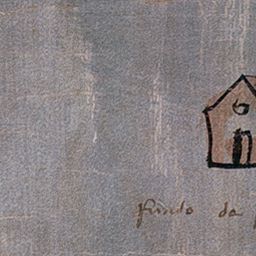 fundo da